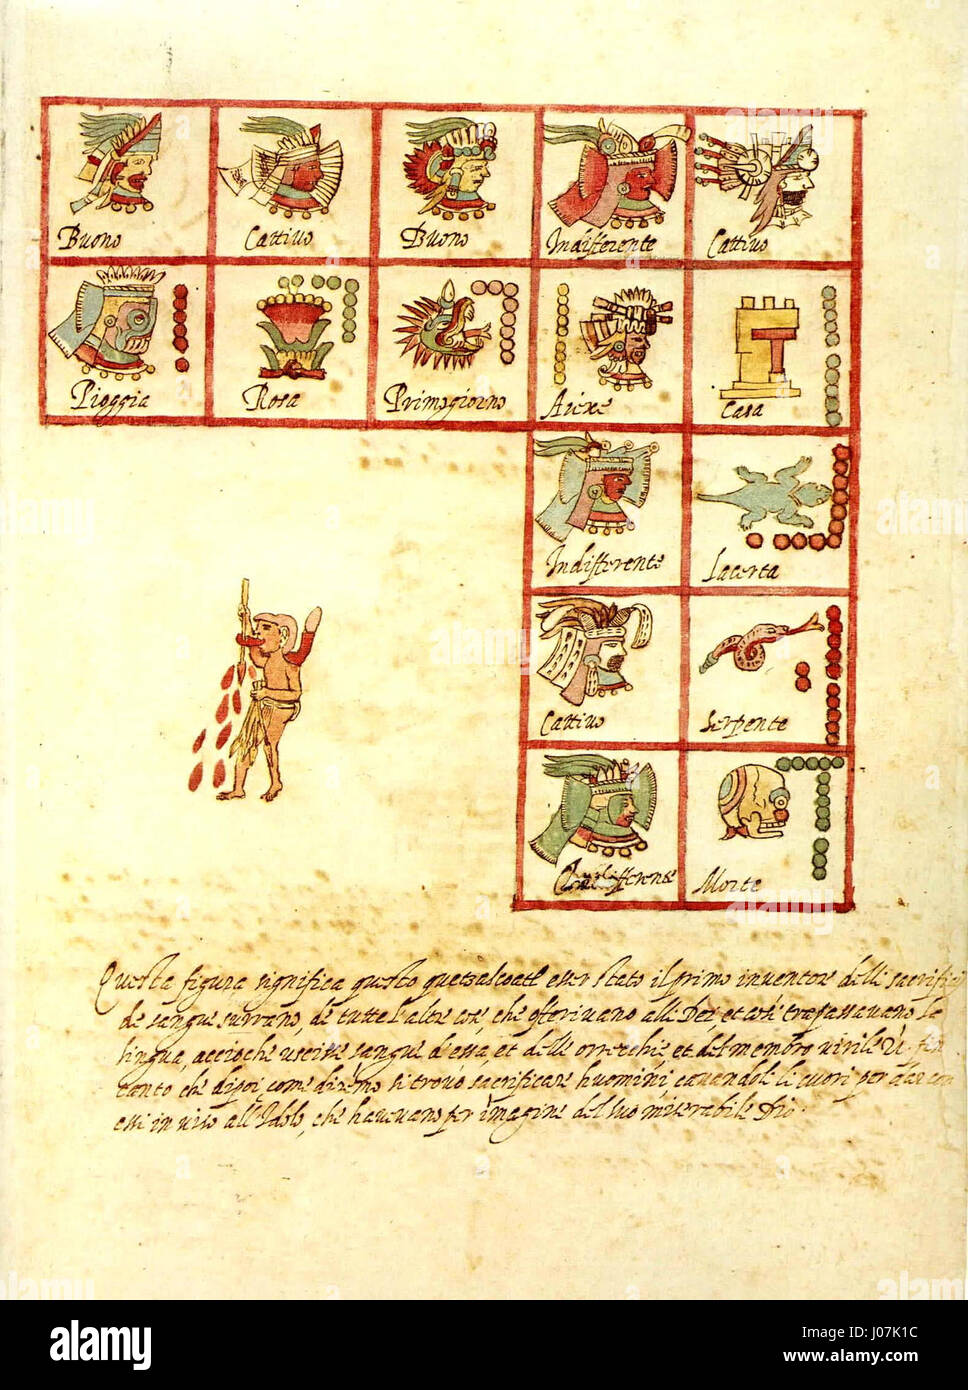 Buono Cattiuo Buono Indifferente Cattiuo
Pioggia Rosa Primogiorno Aiere Casa
Indifferente Lacerta
Cattiuo Serpente
Indifferente Morte
Questa figura significa questo quetzalcoatl esser stato il primo inuentore delli sacrificij
de sangue humano, de tutte l'altre cose, che offeriuano alli Dei, et così trapassauano la
lingua, accioche uscisse sangue d'essa, et delle orrecchie, et del membro uirile
tanto che dipoi come dirèmo si trouò sacrificare huomini, cauandoli li cuori per dar con
essi in uiso all'Idolo, che haueuano per imagine del suo miserabile Dio.
alamy
Image ID: J07K1C
www.alamy.com